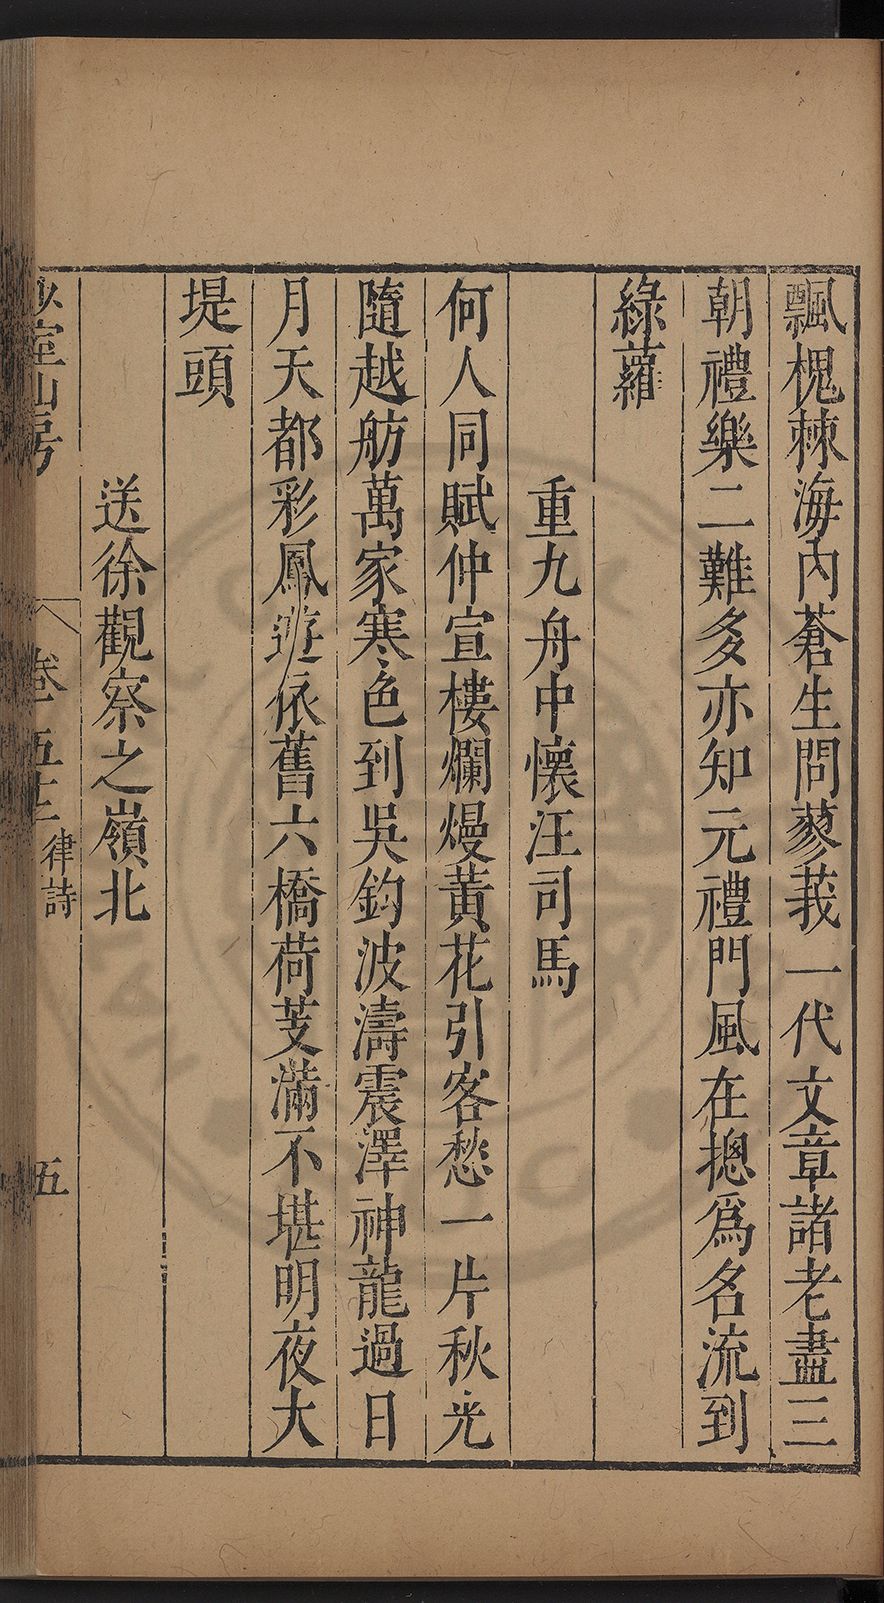 飄槐棘海內蒼生問蓼莪一代文章諸老盡三
朝禮樂二難多亦知元禮門風在摠爲名流到
綠蘿
重九舟中懷汪司馬
何人同賦仲宣樓爛熳黃花引客愁一片秋光
隨越舫萬家寒色到吳鈎波濤震澤神龍過日
月天都彩鳳遊依舊六橋荷芰滿不堪明夜大
堤頭
送徐觀察之嶺北
少室山房
卷五十
律詩
五